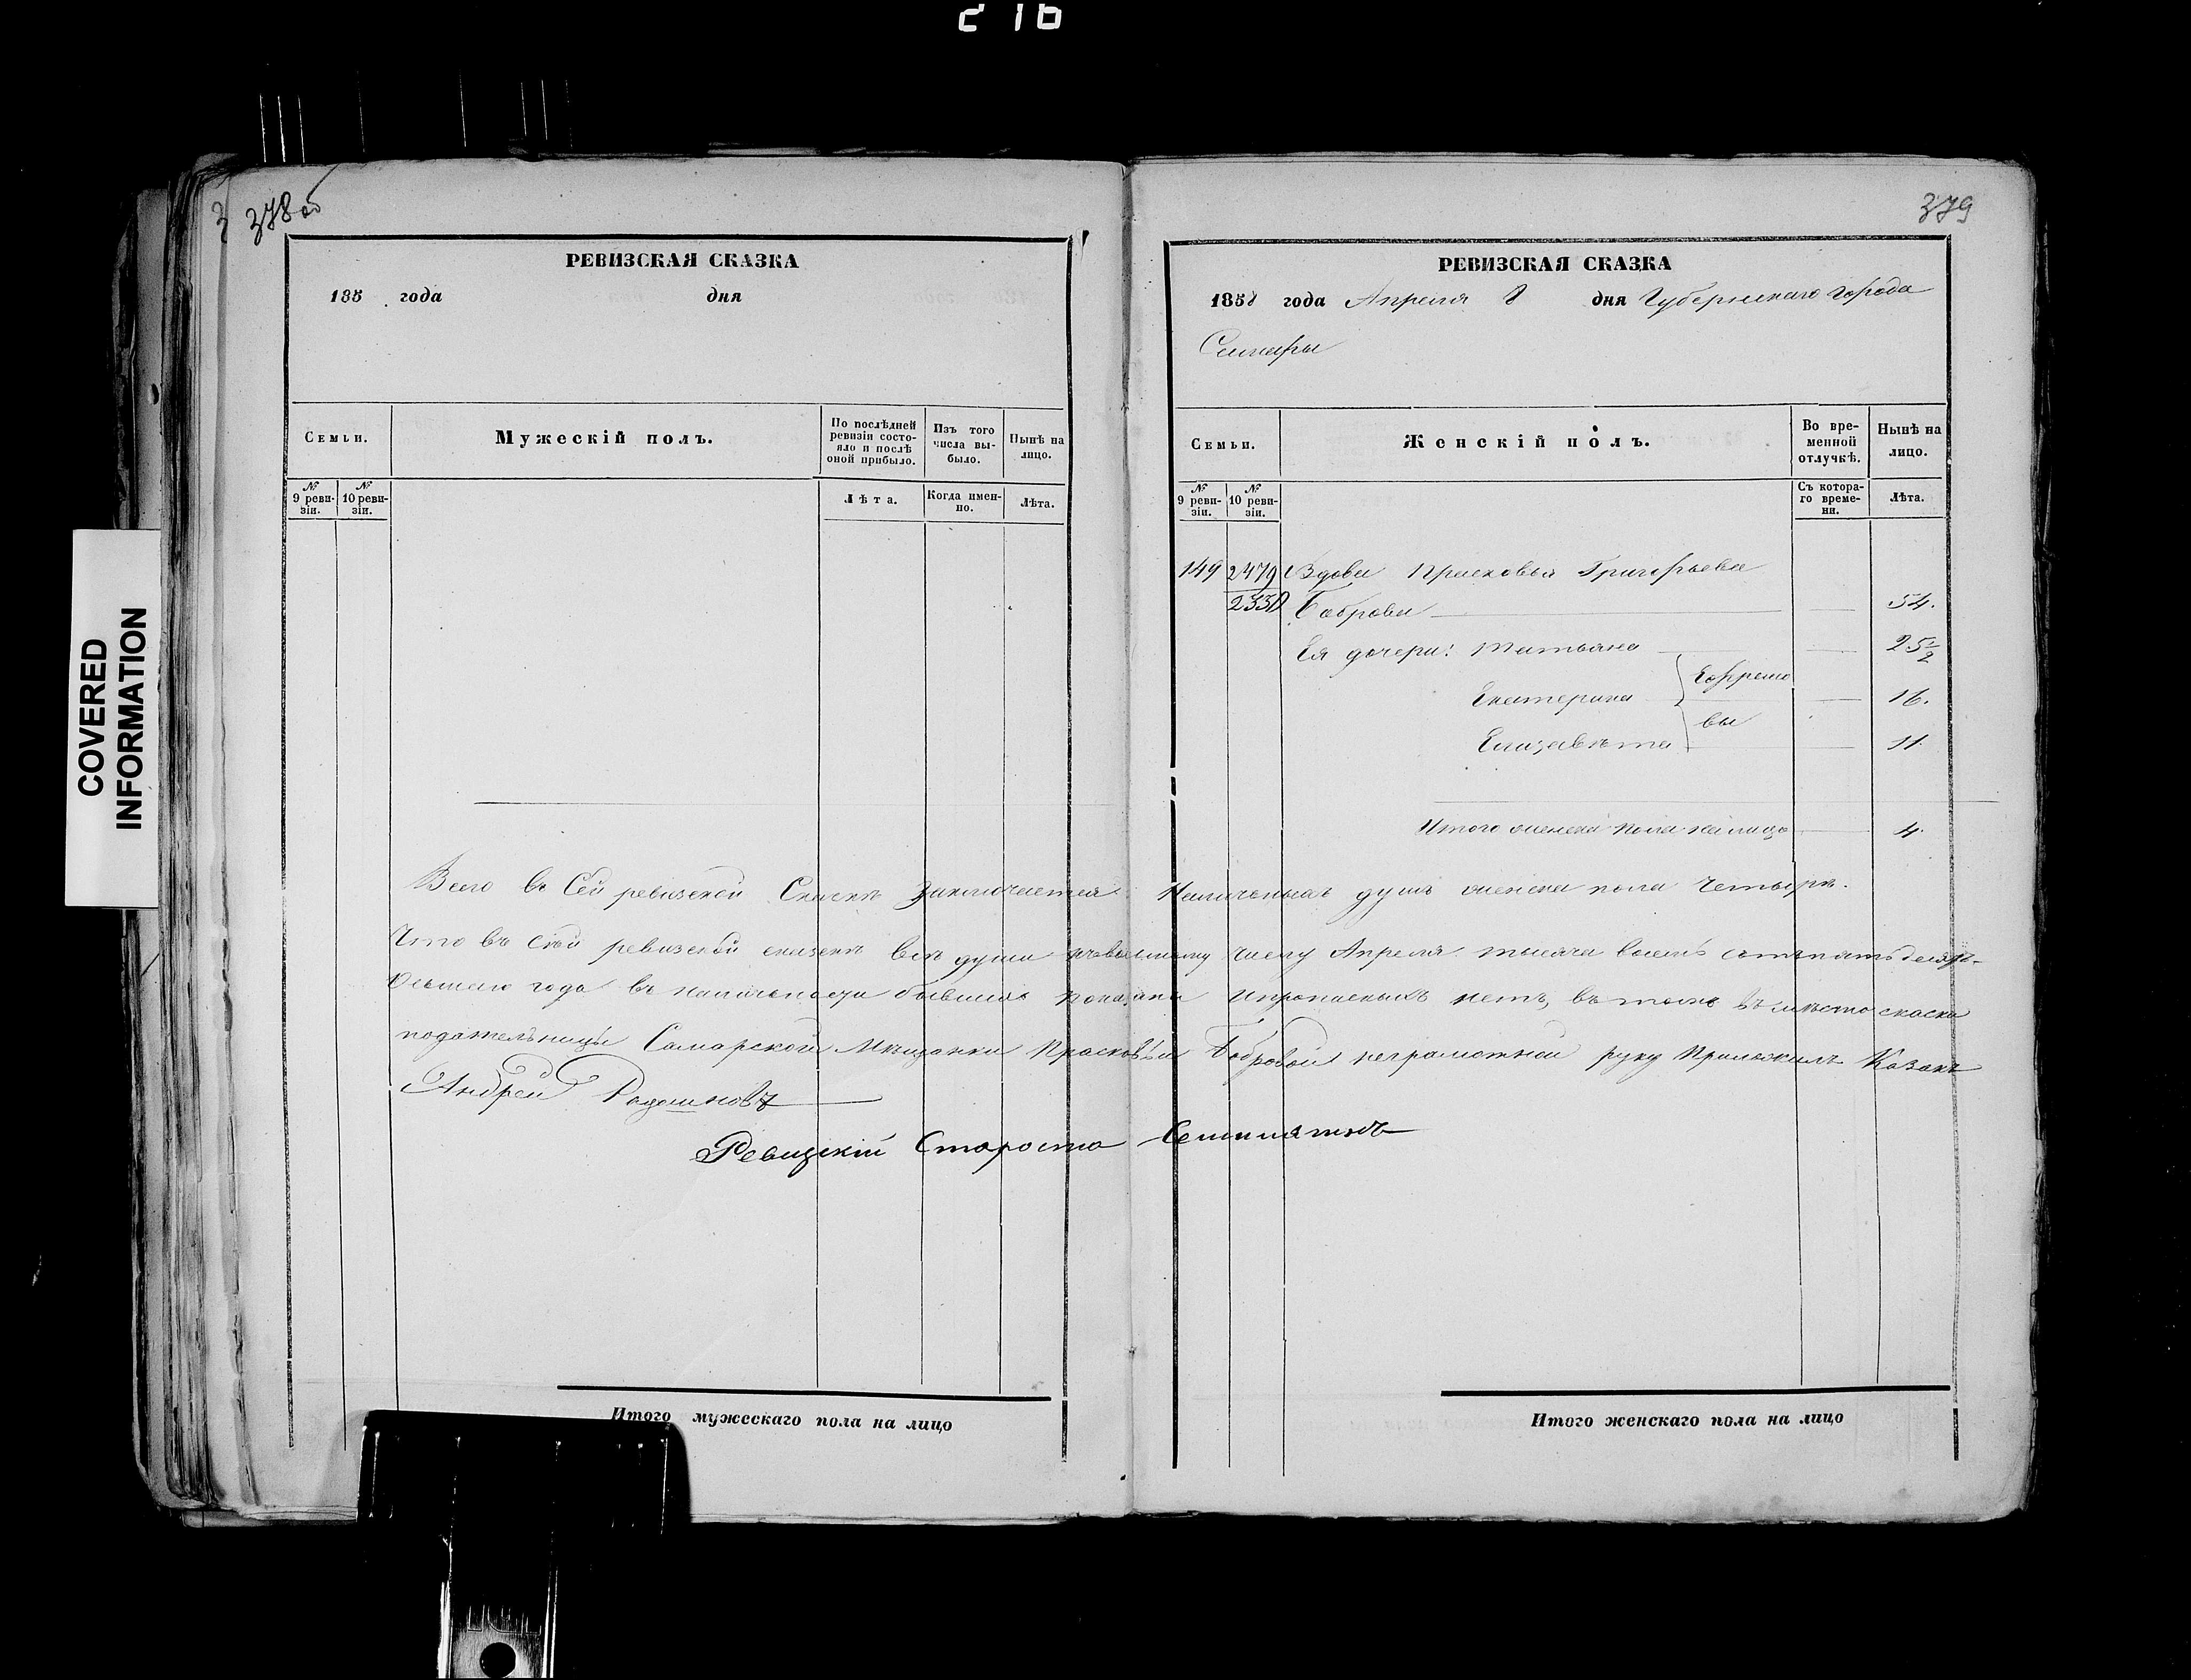 216
378 об
РЕВИЗСКАЯ СКАЗКА
185 года дня
Семьи.
Мужескій полъ.
По послѣдней ревизіи состояло и послѣ оной прибыло.
Изъ того числа выбыло.
Нынѣ на лицо.
№ 9 ревизіи.
№ 10 ревизіи.
Лѣта.
Когда именно.
Лѣта.
379
РЕВИЗСКАЯ СКАЗКА
1858 года Апреля 8 дня Губернскаго города
Самары
Семьи.
Женскій полъ.
Во временной отлучкѣ.
Нынѣ на лицо.
№ 9 ревизіи.
№ 10 ревизіи.
Съ котораго времени.
Лѣта.
149 2479 Вдова Прасковья Григорьева
2330 Боброва 54.
Ея дочери: Татьяна 25 1/2
Екатерина 16.
Елизавѣта 11.
Ефремо
вы
Итого женска пола налицо 4.
Всего въ Сей ревизской Сказкѣ заключается Наличныхъ душъ женска пола Четыре.
Что въ сей ревизской сказкѣ всѣ души къ восьмому числу Апреля тысяча восемь сотъ пятьдесятъ
Осьмаго года въ наличности бывшія показаны и прописныхъ нетъ, въ томъ въ мѣсто сказко
подательницы Самарской Мѣщанки Прасковьи Бобровой неграмотной руку Приложилъ Казакъ
Андрей
Ревизскій Староста
Итого мужескаго пола на лицо
Итого женскаго пола на лицо
COVERED
INFORMATION